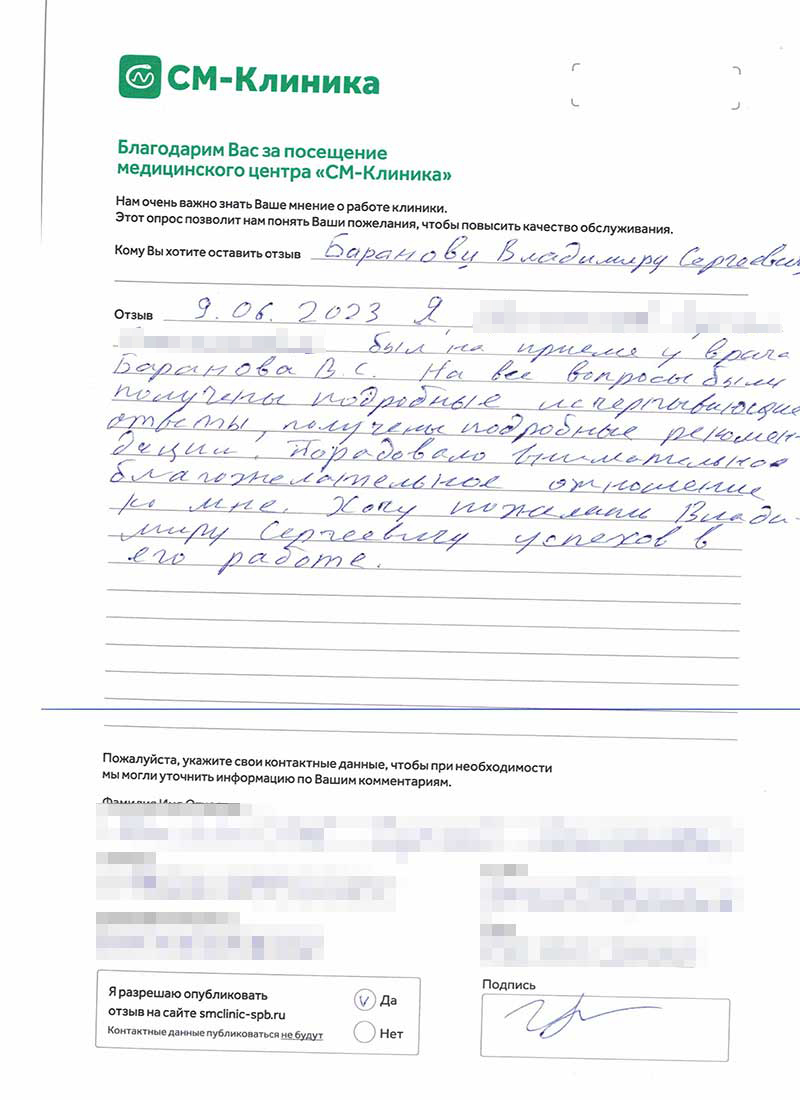 СМ-Клиника
Благодарим Вас за посещение
медицинского центра «СМ-Клиника»
Нам очень важно знать Ваше мнение о работе клиники.
Этот опрос позволит нам понять Ваши пожелания, чтобы повысить качество обслуживания.
Кому Вы хотите оставить отзыв Баранову Владимиру Сергеевичу
Отзыв 9.06.2023 Я,
был на приеме у врача
Баранова В.С. На все вопросы были
получены подробные исчерпывающие
ответы, получены подробные рекомен-
дации. Порадовало внимательное
благожелательное отношение
ко мне. Хочу пожелать Влади-
миру Сергеевичу успехов в
его работе.
Пожалуйста, укажите свои контактные данные, чтобы при необходимости
мы могли уточнить информацию по Вашим комментариям.
Фамилия Имя Отчество
Я разрешаю опубликовать
отзыв на сайте smclinic-spb.ru
Контактные данные публиковаться не будут
Да
Нет
Подпись